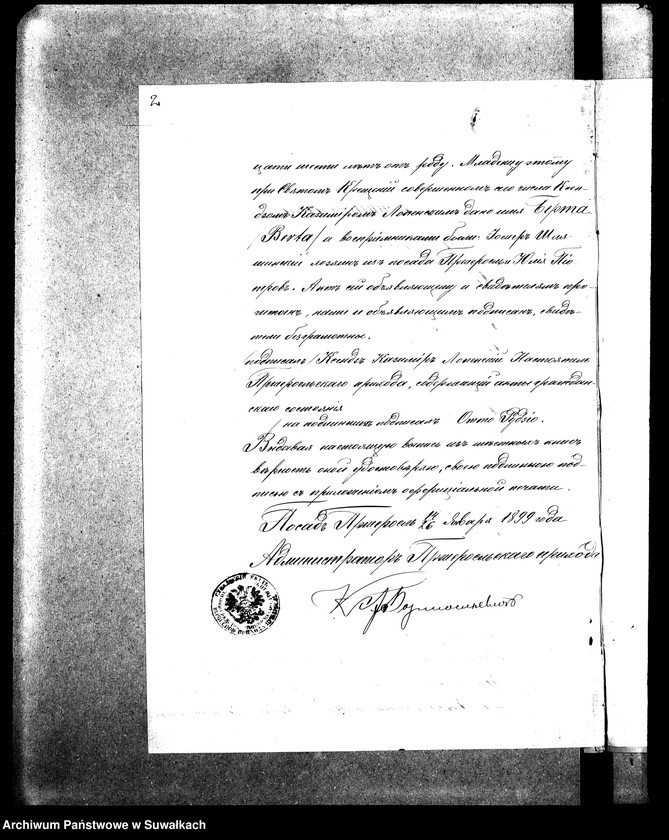 2
цати шести лѣтъ отъ роду. Младенцу этому
при Святомъ Крещеніи совершенномъ сего числа Ксен-
дзомъ Казиміромъ дано имя Берта
/Berta/ а воспріемниками были: Іосифъ Шля-
шинскій изъ посада Пржеросль и Юлія Пе-
тровъ. Актъ сей объявляющему и свидѣтелямъ про-
читанъ, нами и объявляющимъ подписанъ, свидѣ-
тели безграмотны.
/подписалъ/ Ксендзъ Казиміръ Настоятель
Пржеросльскаго прихода, содержащій акты граждан-
скаго состоянія
/на подлинникѣ подписалъ Отто
Выдавая настоящую выпись изъ книгъ
вѣрность оной удостовѣряю, своею подлинною под-
писью съ приложеніемъ оффиціальной печати.
Посадъ Пржеросль 14/26 Января 1899 года
Администраторъ Пржеросльскаго прихода
Archiwum Państwowe w Suwałkach